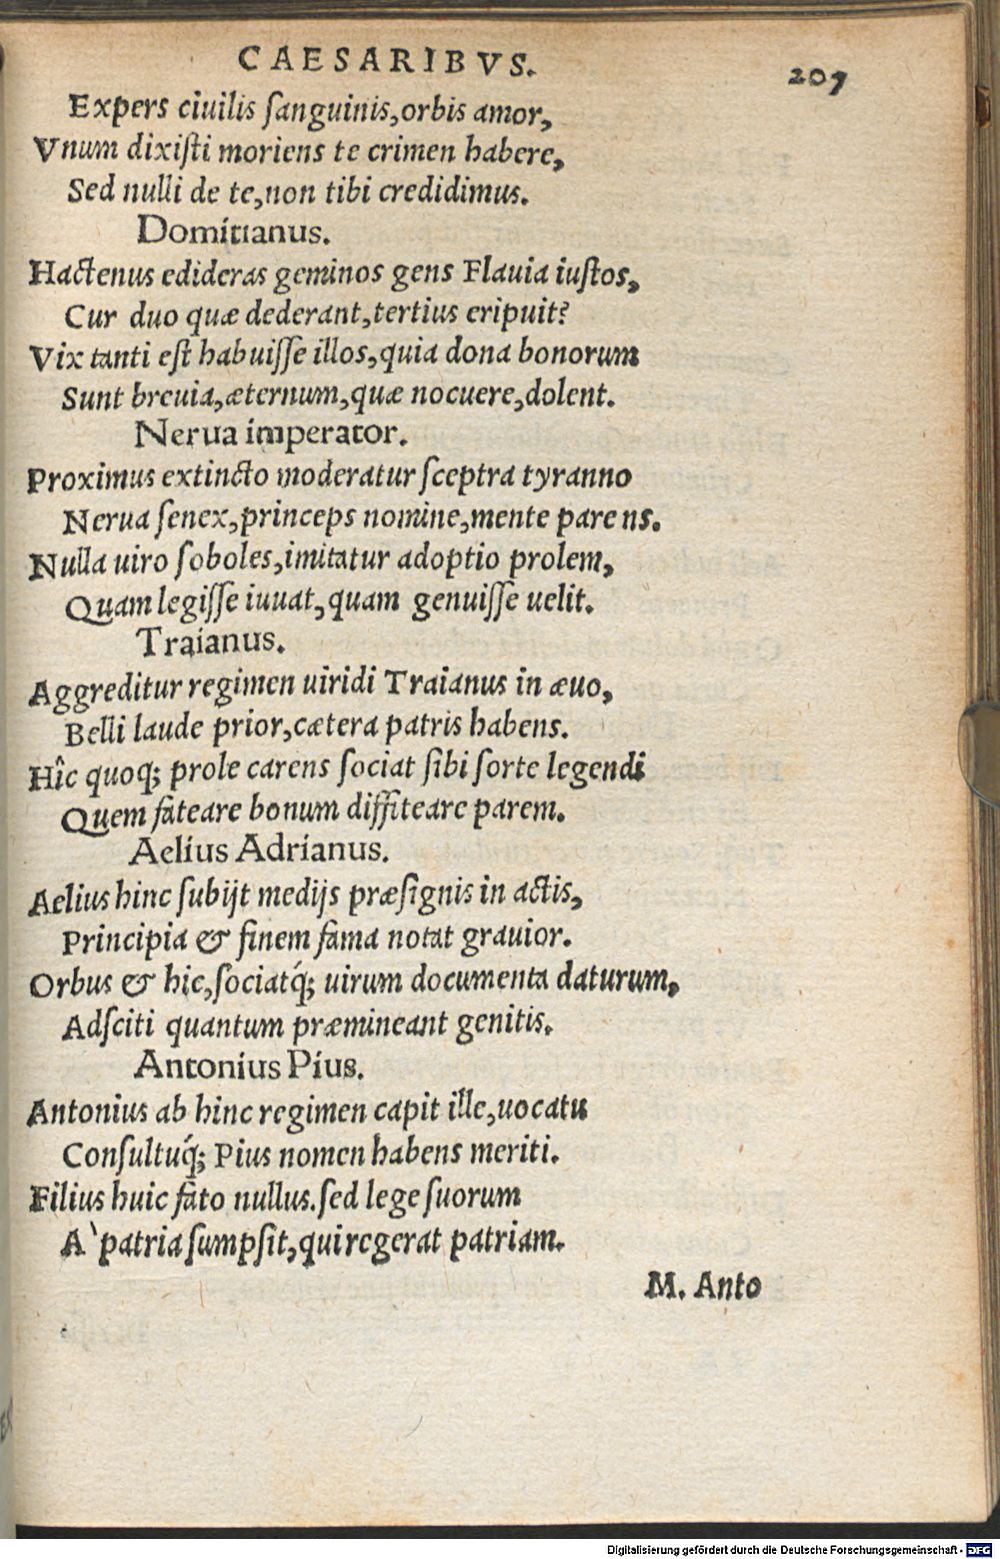 CAESARIBVS. 207
Expers ciuilis ſanguinis,orbis amor,
Vnum dixiſti moriens te crimen habere,
Sed nulli de te,non tibi credidimus.
Domitianus.
Hactenus edideras geminos gens Flauia iuſtos,
Cur duo quæ dederant,tertius eripuit?
Vix tanti eſt habuiſſe illos,quia dona bonorum
Sunt breuia,æternum,quæ nocuere,dolent.
Nerua imperator.
Proximus extincto moderatur ſceptra tyranno
Nerua ſenex,princeps nomine,mente parens.
Nulla uiro ſoboles,imitatur adoptio prolem,
Quam legiſſe iuuat,quam genuiſſe uelit.
Traianus.
Aggreditur regimen uiridi Traianus in æuo,
Belli laude prior,cætera patris habens.
Hîc quoq; prole carens ſociat ſibi ſorte legendi
Quem fateare bonum diffiteare parem.
Aelius Adrianus.
Aelius hinc ſubijt medijs præſignis in actis,
Principia & finem fama notat grauior.
Orbus & hic,ſociatq́; uirum documenta daturum,
Adſciti quantum præmineant genitis.
Antonius Pius.
Antonius ab hinc regimen capit ille,uocatu
Conſultuq́; Pius nomen habens meriti.
Filius huic fato nullus.ſed lege ſuorum
A`patria ſumpſit,qui regerat patriam.
M. Anto
Digitalisierung gefördert durch die Deutsche Forschungsgemeinschaft - DFG